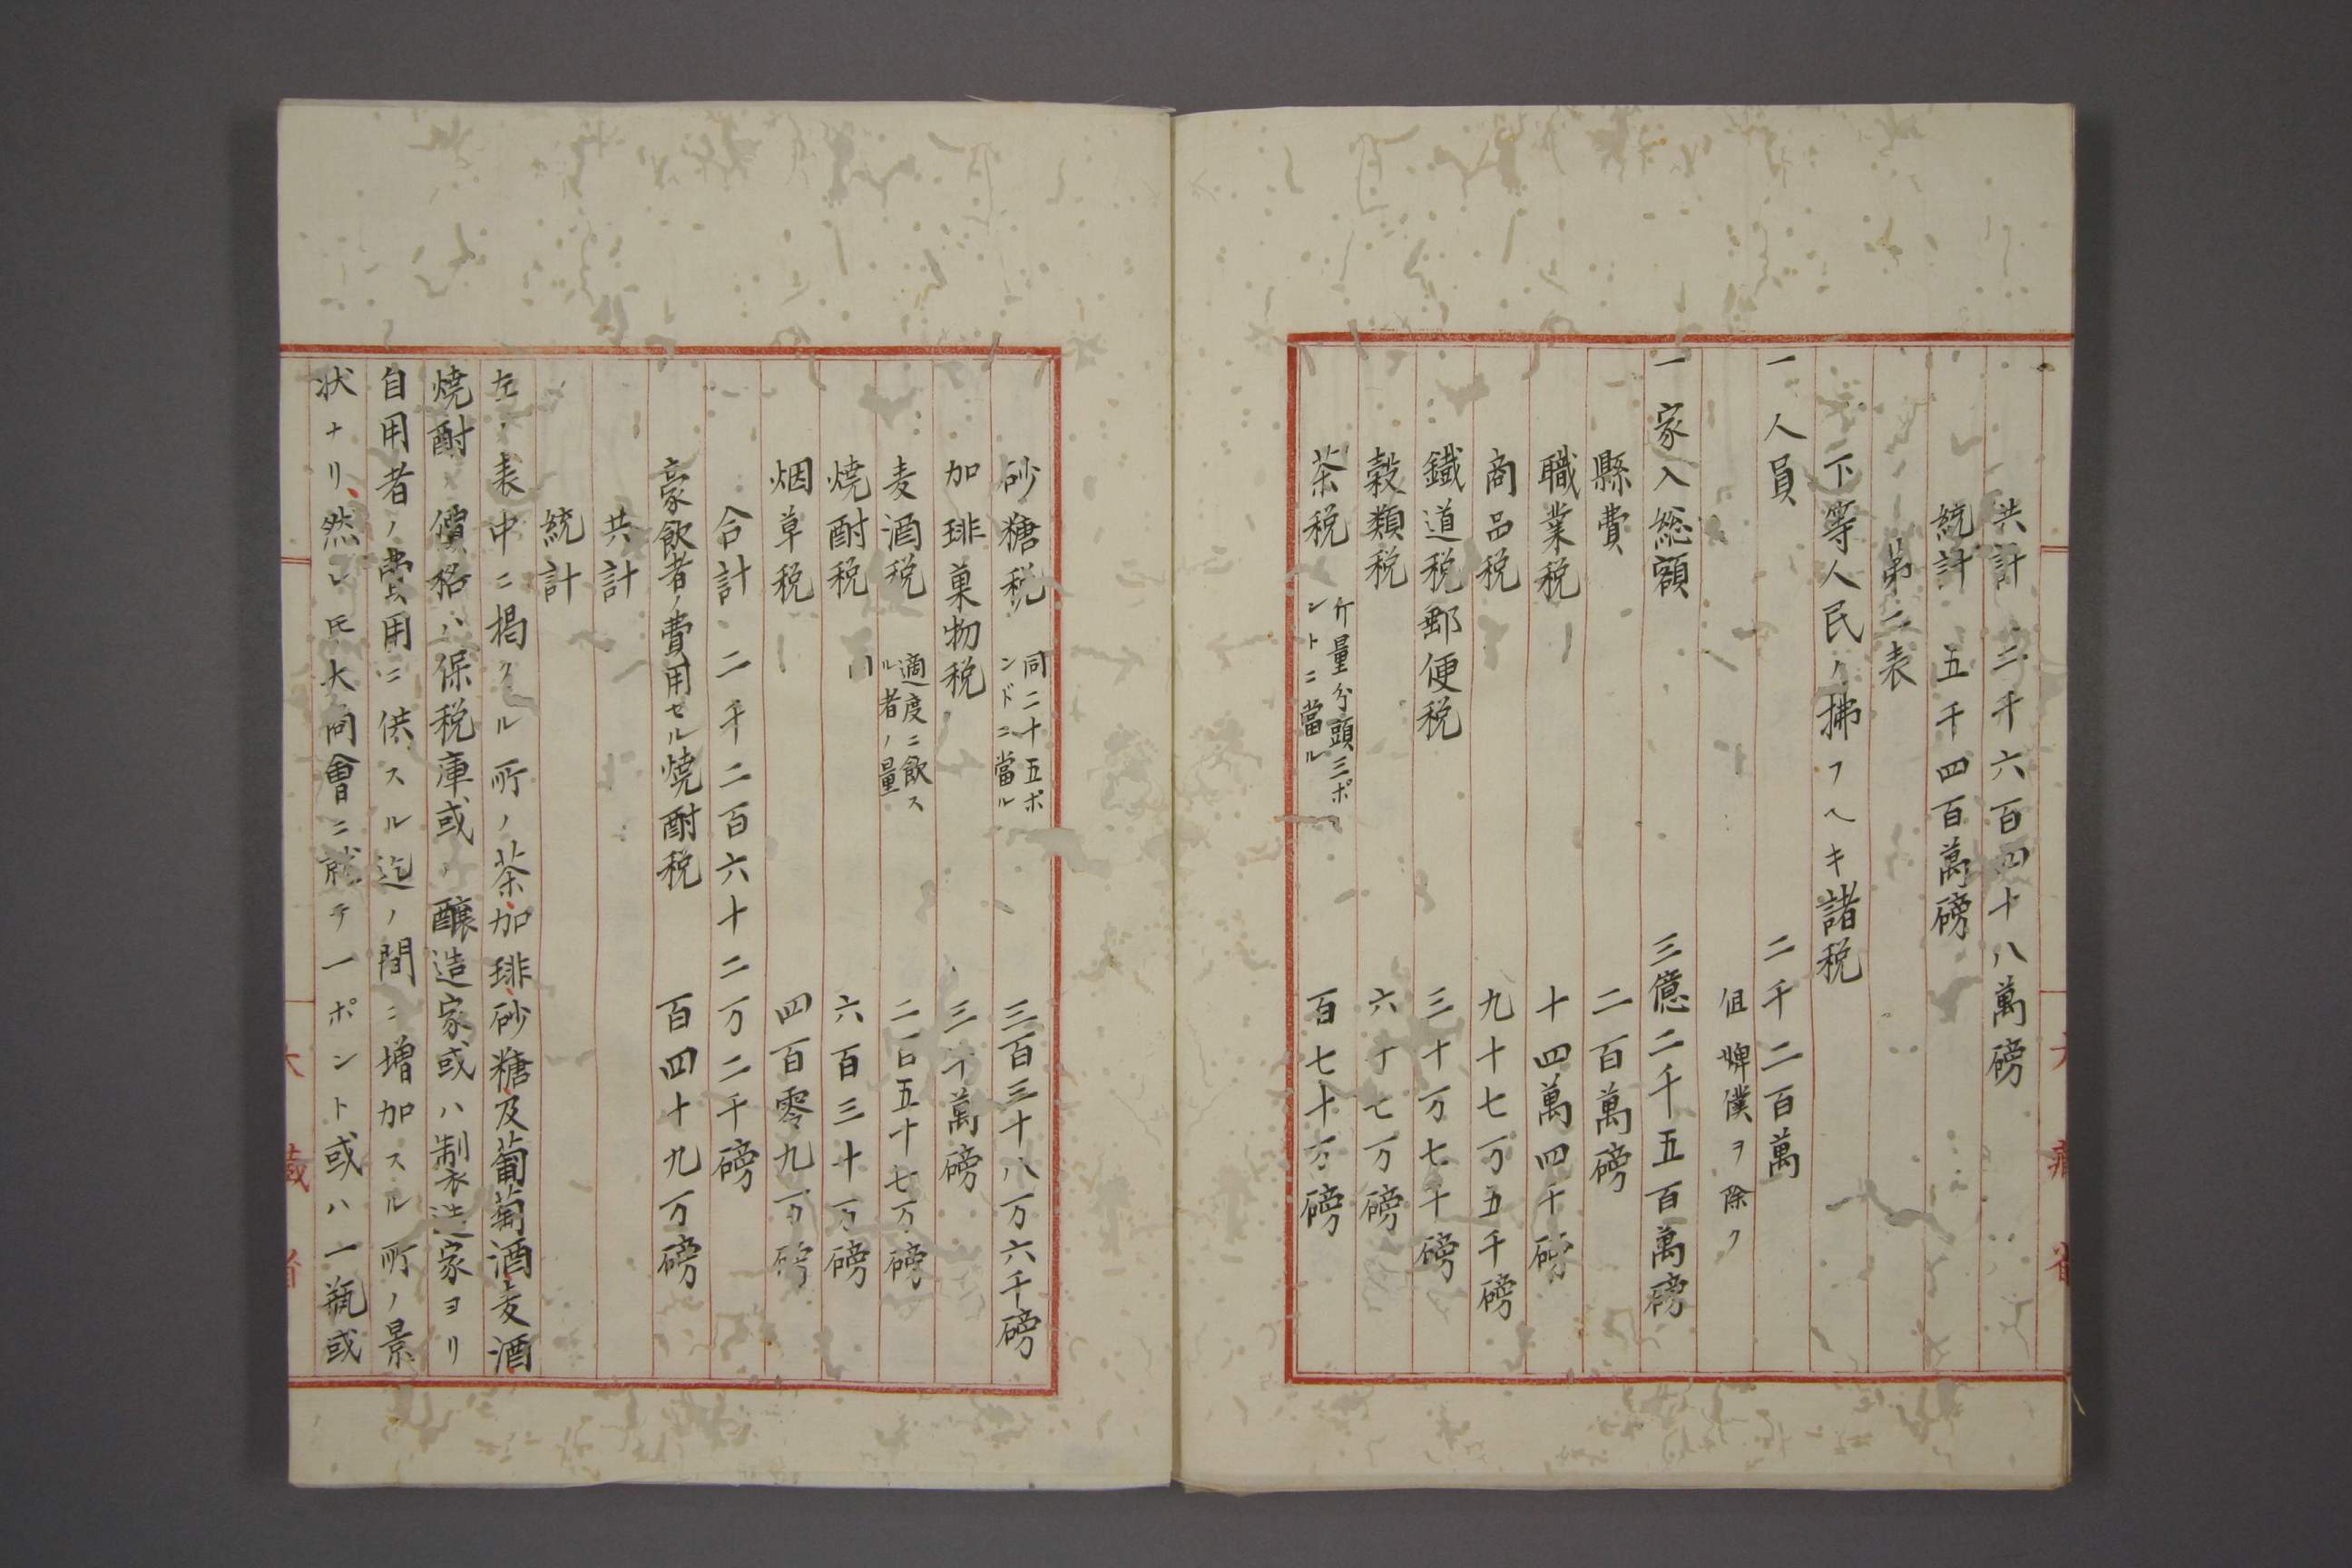 共計 二千六百四十八萬磅
統計 五千四百萬磅
第二表
下等人民ノ拂フヘキ諸税
一 人員 二千二百萬
但婢僕ヲ除ク
一 家入総額 三億二千五百萬磅
縣費 二百萬磅
職業税 十四萬四千磅
商品税 九十七万五千磅
鐵道税郵便税 三十万七千磅
穀類税 六十七万磅
茶税 斤量分頭三ポ
ントニ當ル 百七十万磅
砂糖税 同二十五ポ
ンドニ當ル 三百三十八万六千磅
加琲菓物税 三十萬磅
麦酒税 適度ニ飲ス
ル者ノ量 二百五十七万磅
焼酎税 〃 六百三十万磅
烟草税 四百零九万磅
合計 二千二百六十二万二千磅
豪飲者ノ費用セル焼酎税 百四十九万磅
共計
統計
左ノ表中ニ掲クル所ノ茶加琲砂糖及葡萄酒麦酒
焼酎ノ價格ハ保税庫或ハ醸造家或ハ製造家ヨリ
自用者ノ費用ニ供スル迄ノ間ニ増加スル所ノ景
状ナリ然レ𪜈大同會ニ就テ一ポント或ハ一瓶或
大藏省
大藏省